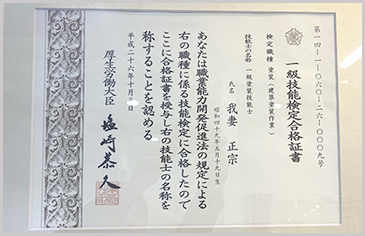 第一四-一-〇六〇-二六-〇〇〇九号
一級技能検定合格証書
検定職種 塗装(建築塗装作業)
技能士の名称 一級塗装技能士
氏名 我妻 正宗
昭和四十九年五月十九日生
あなたは職業能力開発促進法の規定による
右の職種に係る技能検定に合格したので
ここに合格証書を授与し右の技能士の名称を
称することを認める
平成二十六年十月
厚生労働大臣 塩崎恭久